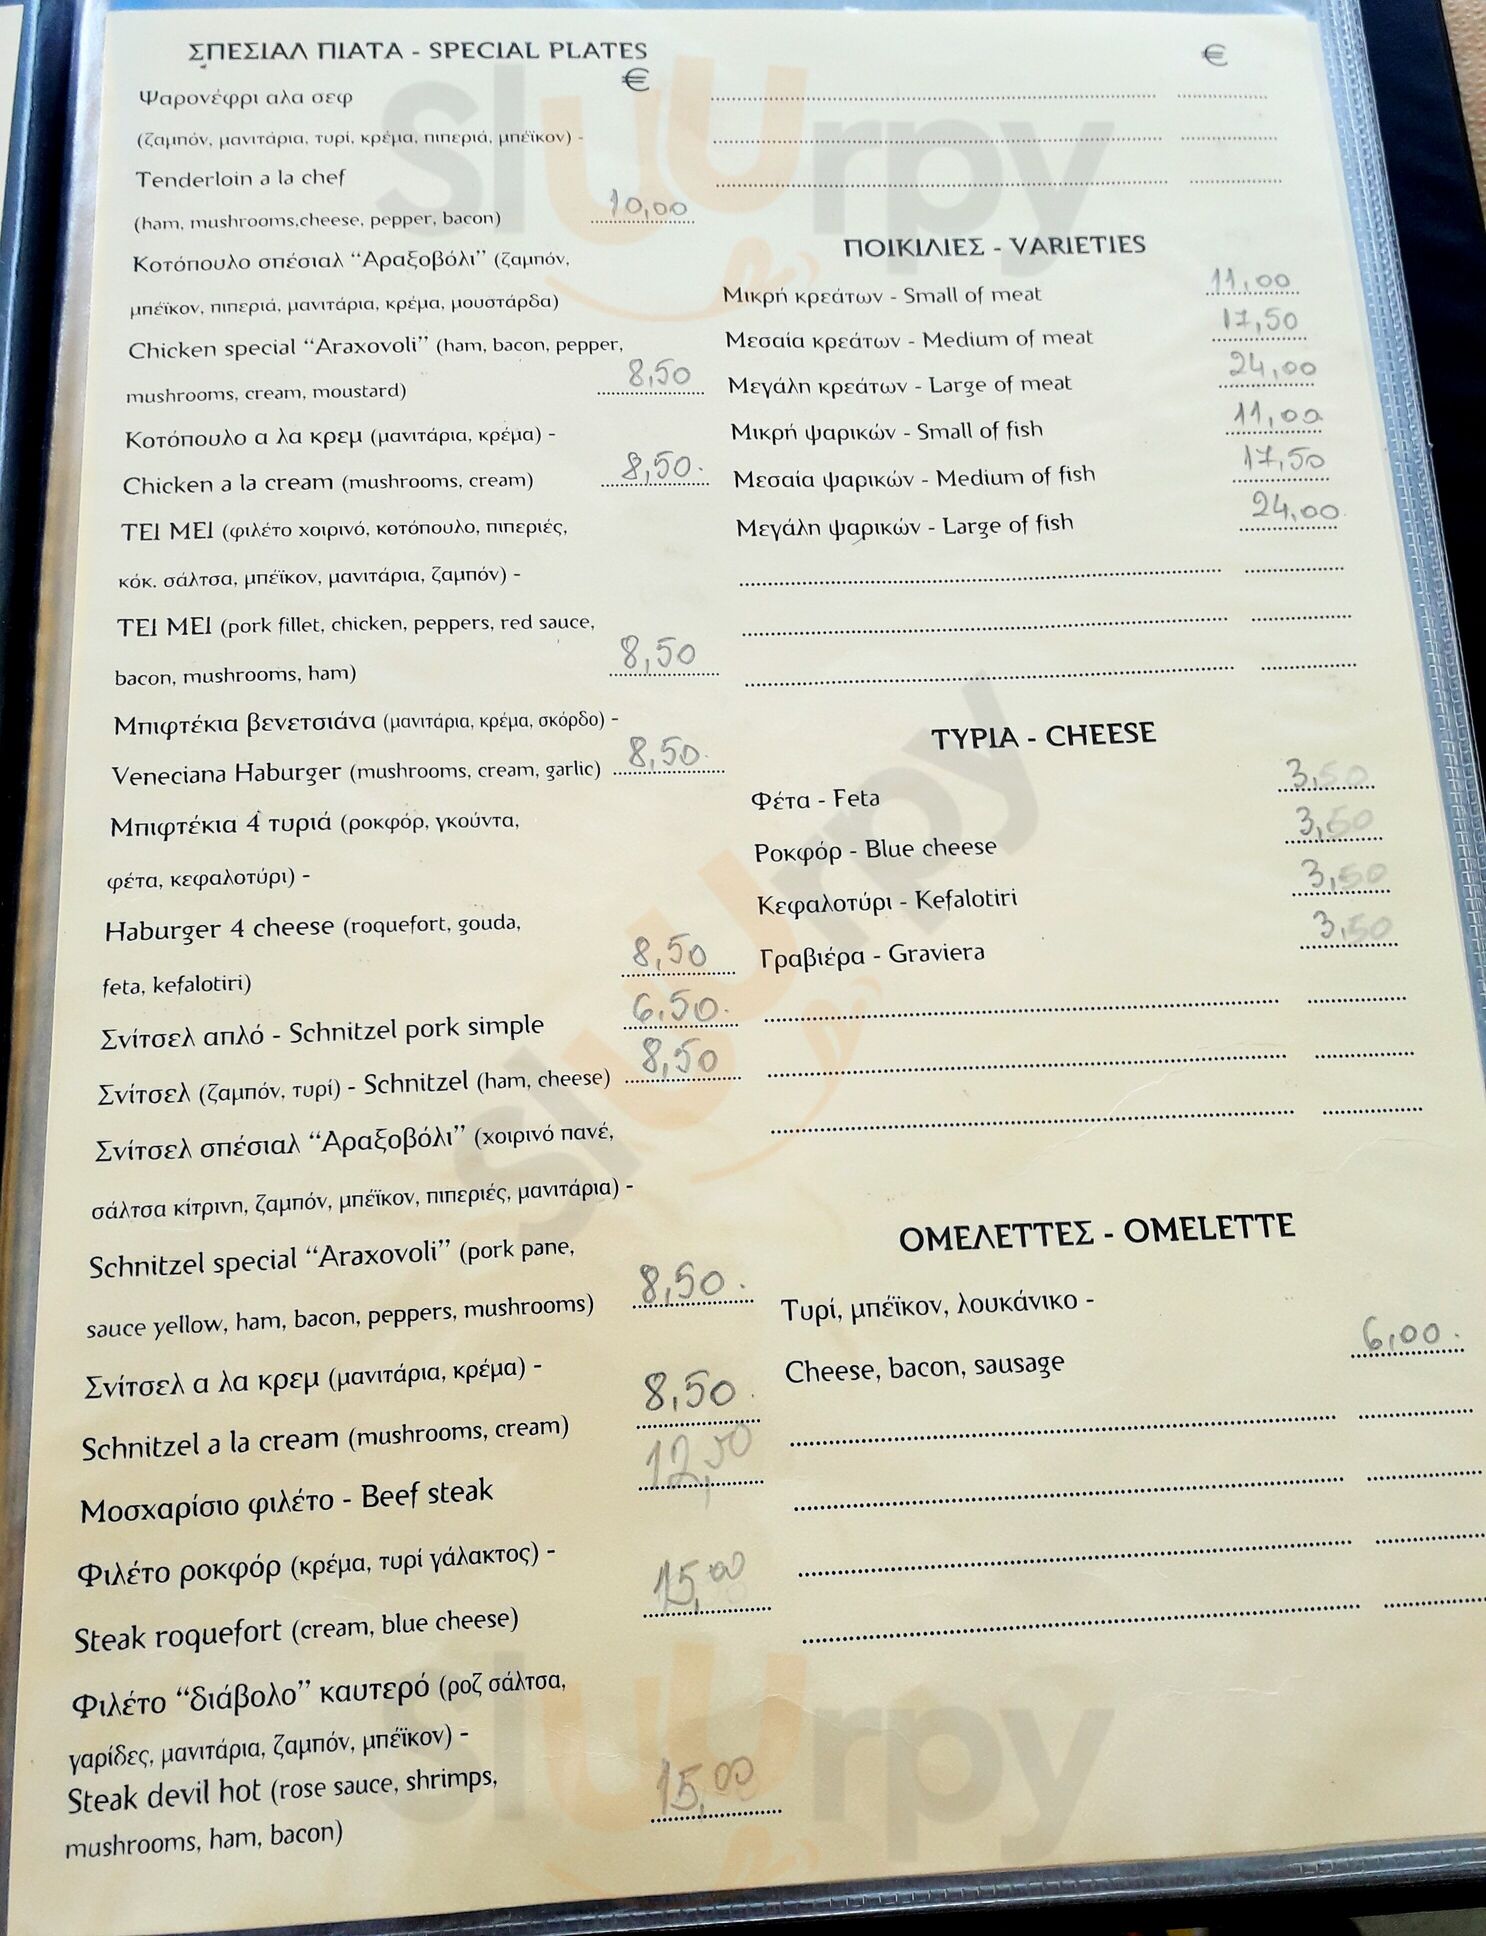 ΣΠΕΣΙΑΛ ΠΙΑΤΑ - SPECIAL PLATES
€
Ψαρονέφρι αλα σεφ
(ζαμπόν, μανιτάρια, τυρί, κρέμα, πιπεριά, μπέϊκον) -
Tenderloin a la chef
(ham, mushrooms.cheese, pepper, bacon) 10,00
Κοτόπουλο σπέσιαλ “Αραξοβόλι” (ζαμπόν,
μπέϊκον, πιπεριά, μανιτάρια, κρέμα, μουστάρδα)
Chicken special “Araxovoli” (ham, bacon, pepper,
mushrooms, cream, moustard) 8,50
Κοτόπουλο α λα κρεμ (μανιτάρια, κρέμα) -
Chicken a la cream (mushrooms, cream) 8,50
ΤΕΙ ΜΕΙ (φιλέτο χοιρινό, κοτόπουλο, πιπεριές,
κόκ. σάλτσα, μπέϊκον, μανιτάρια, ζαμπόν) -
ΤΕΙ ΜΕΙ (pork fillet, chicken, peppers, red sauce,
bacon, mushrooms, ham) 8,50
Μπιφτέκια βενετσιάνα (μανιτάρια, κρέμα, σκόρδο) -
Veneciana Haburger (mushrooms, cream, garlic) 8,50
Μπιφτέκια 4 τυριά (ροκφόρ, γκούντα,
φέτα, κεφαλοτύρι) -
Haburger 4 cheese (roquefort, gouda,
feta, kefalotiri) 8,50
Σνίτσελ απλό - Schnitzel pork simple 6,50
Σνίτσελ (ζαμπόν, τυρί) - Schnitzel (ham, cheese) 8,50
Σνίτσελ σπέσιαλ “Αραξοβόλι” (χοιρινό πανέ,
σάλτσα κίτρινη, ζαμπόν, μπέϊκον, πιπεριές, μανιτάρια) -
Schnitzel special “Araxovoli” (pork pane,
sauce yellow, ham, bacon, peppers, mushrooms) 8,50
Σνίτσελ α λα κρεμ (μανιτάρια, κρέμα) -
Schnitzel a la cream (mushrooms, cream) 8,50
Μοσχαρίσιο φιλέτο - Beef steak 12,50
Φιλέτο ροκφόρ (κρέμα, τυρί γάλακτος) -
Steak roquefort (cream, blue cheese) 15,00
Φιλέτο “διάβολο” καυτερό (ροζ σάλτσα,
γαρίδες, μανιτάρια, ζαμπόν, μπέϊκον) -
Steak devil hot (rose sauce, shrimps,
mushrooms, ham, bacon) 15,00
€
ΠΟΙΚΙΛΙΕΣ - VARIETIES
Μικρή κρεάτων - Small of meat 11,00
Μεσαία κρεάτων - Medium of meat 17,50
Μεγάλη κρεάτων - Large of meat 24,00
Μικρή ψαρικών - Small of fish 11,00
Μεσαία ψαρικών - Medium of fish 17,50
Μεγάλη ψαρικών - Large of fish 24,00
ΤΥΡΙΑ - CHEESE
Φέτα - Feta 3,50
Ροκφόρ - Blue cheese 3,50
Κεφαλοτύρι - Kefalotiri 3,50
Γραβιέρα - Graviera 3,50
ΟΜΕΛΕΤΤΕΣ - OMELETTE
Τυρί, μπέϊκον, λουκάνικο -
Cheese, bacon, sausage 6,00
sluurpy
sluurpy
sluurpy